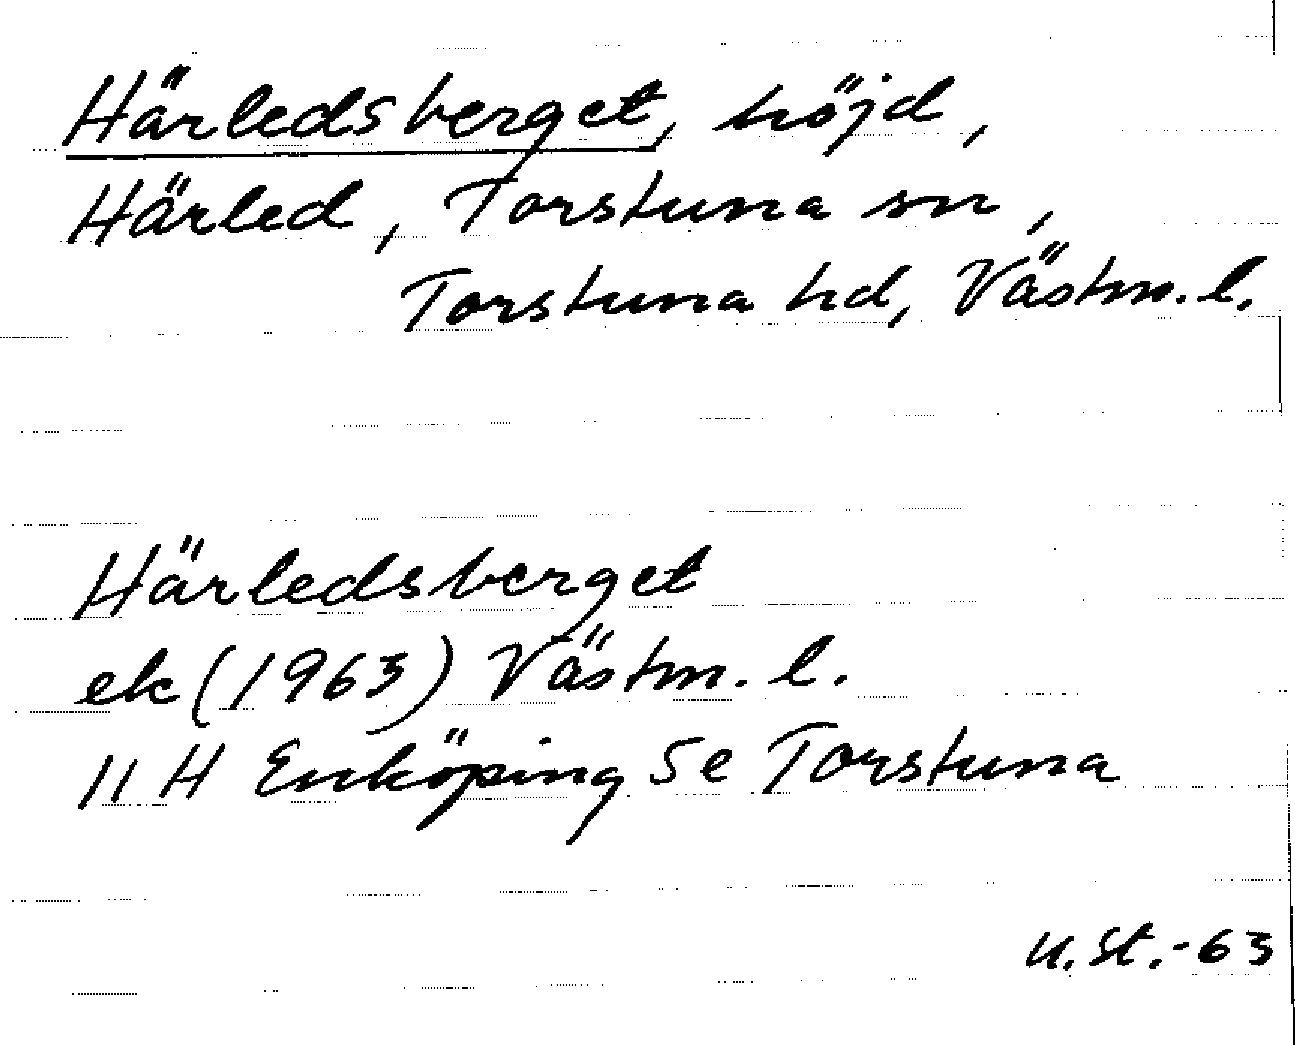 Härledsberget, höjd,
Härled, Torstuna sn,
Torstuna hd, Västm. l.
Härledsberget
ek (1963) Västm. l.
11 H Enköping 5e Torstuna
U.St.-63